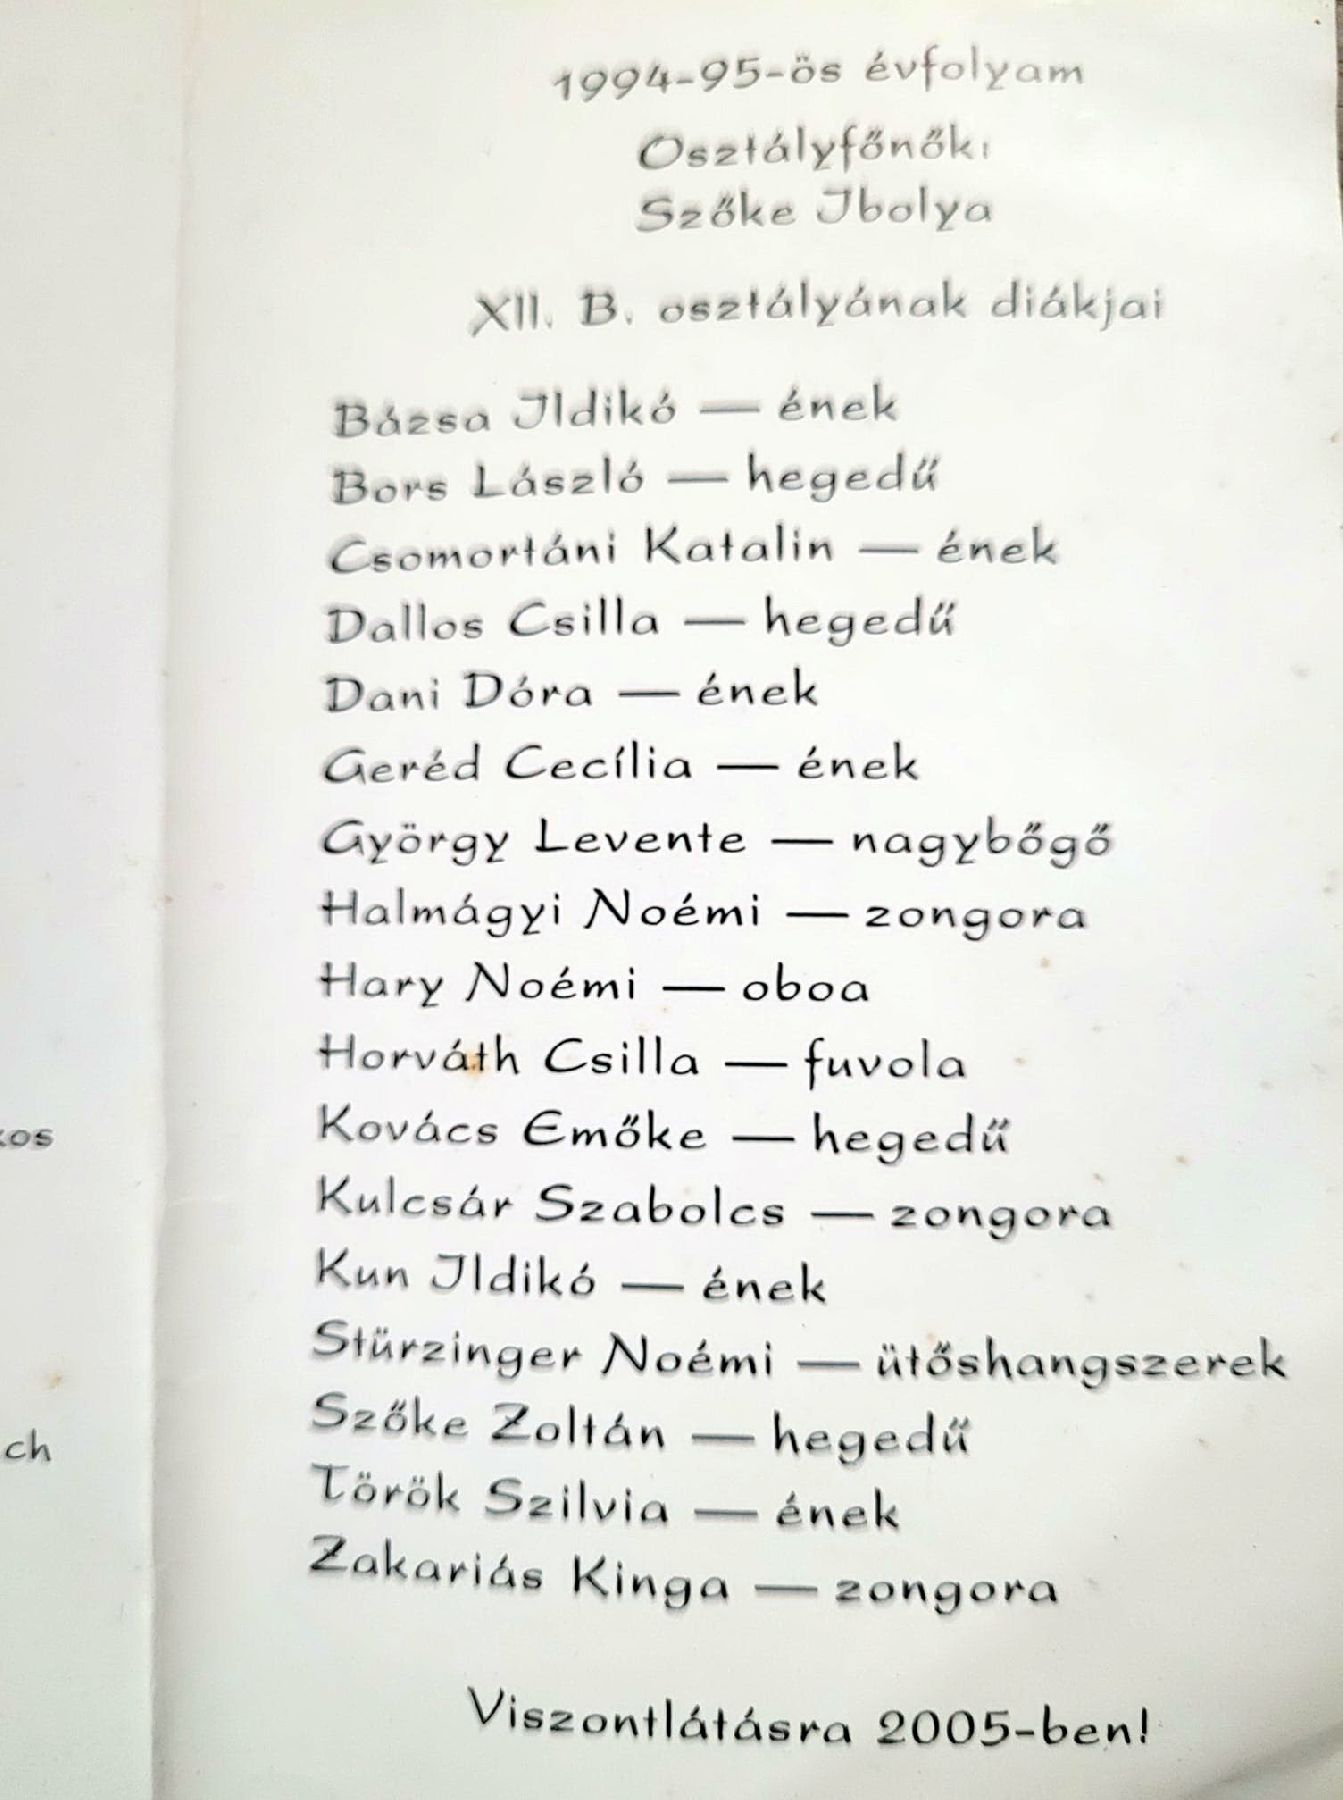 1994-95-ös évfolyam
Osztályfőnők:
Szőke Ibolya
XII. B. osztályának diákjai
Bázsa Ildikó — ének
Bors László — hegedű
Csomortáni Katalin — ének
Dallos Csilla — hegedű
Dani Dóra — ének
Geréd Cecília — ének
György Levente — nagybőgő
Halmágyi Noémi — zongora
Hary Noémi — oboa
Horváth Csilla — fuvola
Kovács Emőke — hegedű
Kulcsár Szabolcs — zongora
Kun Ildikó — ének
Stürzinger Noémi — ütőshangszerek
Szőke Zoltán — hegedű
Török Szilvia — ének
Zakariás Kinga — zongora
Viszontlátásra 2005-ben!